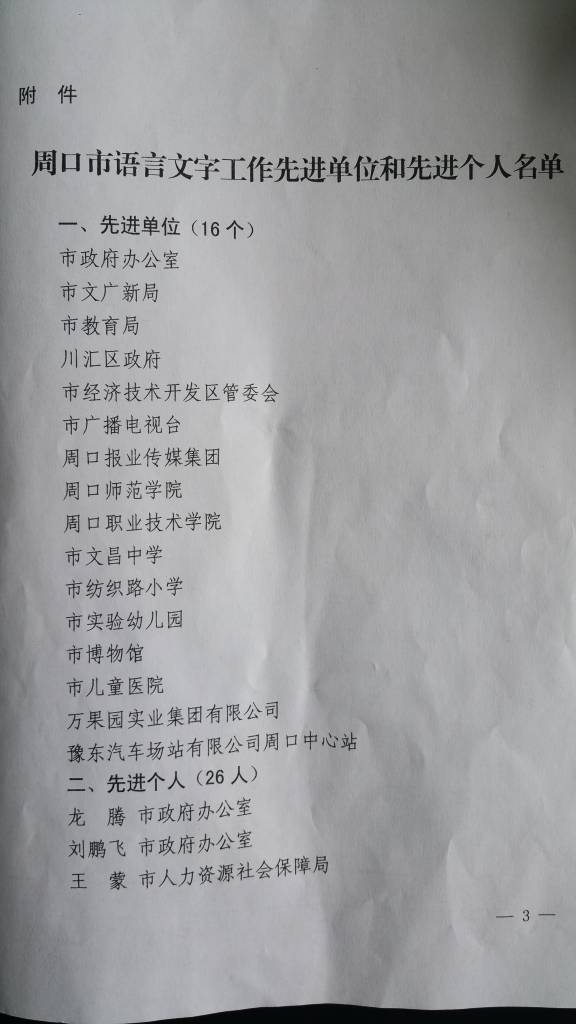 附 件
周口市语言文字工作先进单位和先进个人名单
一、先进单位（16个）
市政府办公室
市文广新局
市教育局
川汇区政府
市经济技术开发区管委会
市广播电视台
周口报业传媒集团
周口师范学院
周口职业技术学院
市文昌中学
市纺织路小学
市实验幼儿园
市博物馆
市儿童医院
万果园实业集团有限公司
豫东汽车场站有限公司周口中心站
二、先进个人（26人）
龙 腾 市政府办公室
刘鹏飞 市政府办公室
王 蒙 市人力资源社会保障局
— 3 —